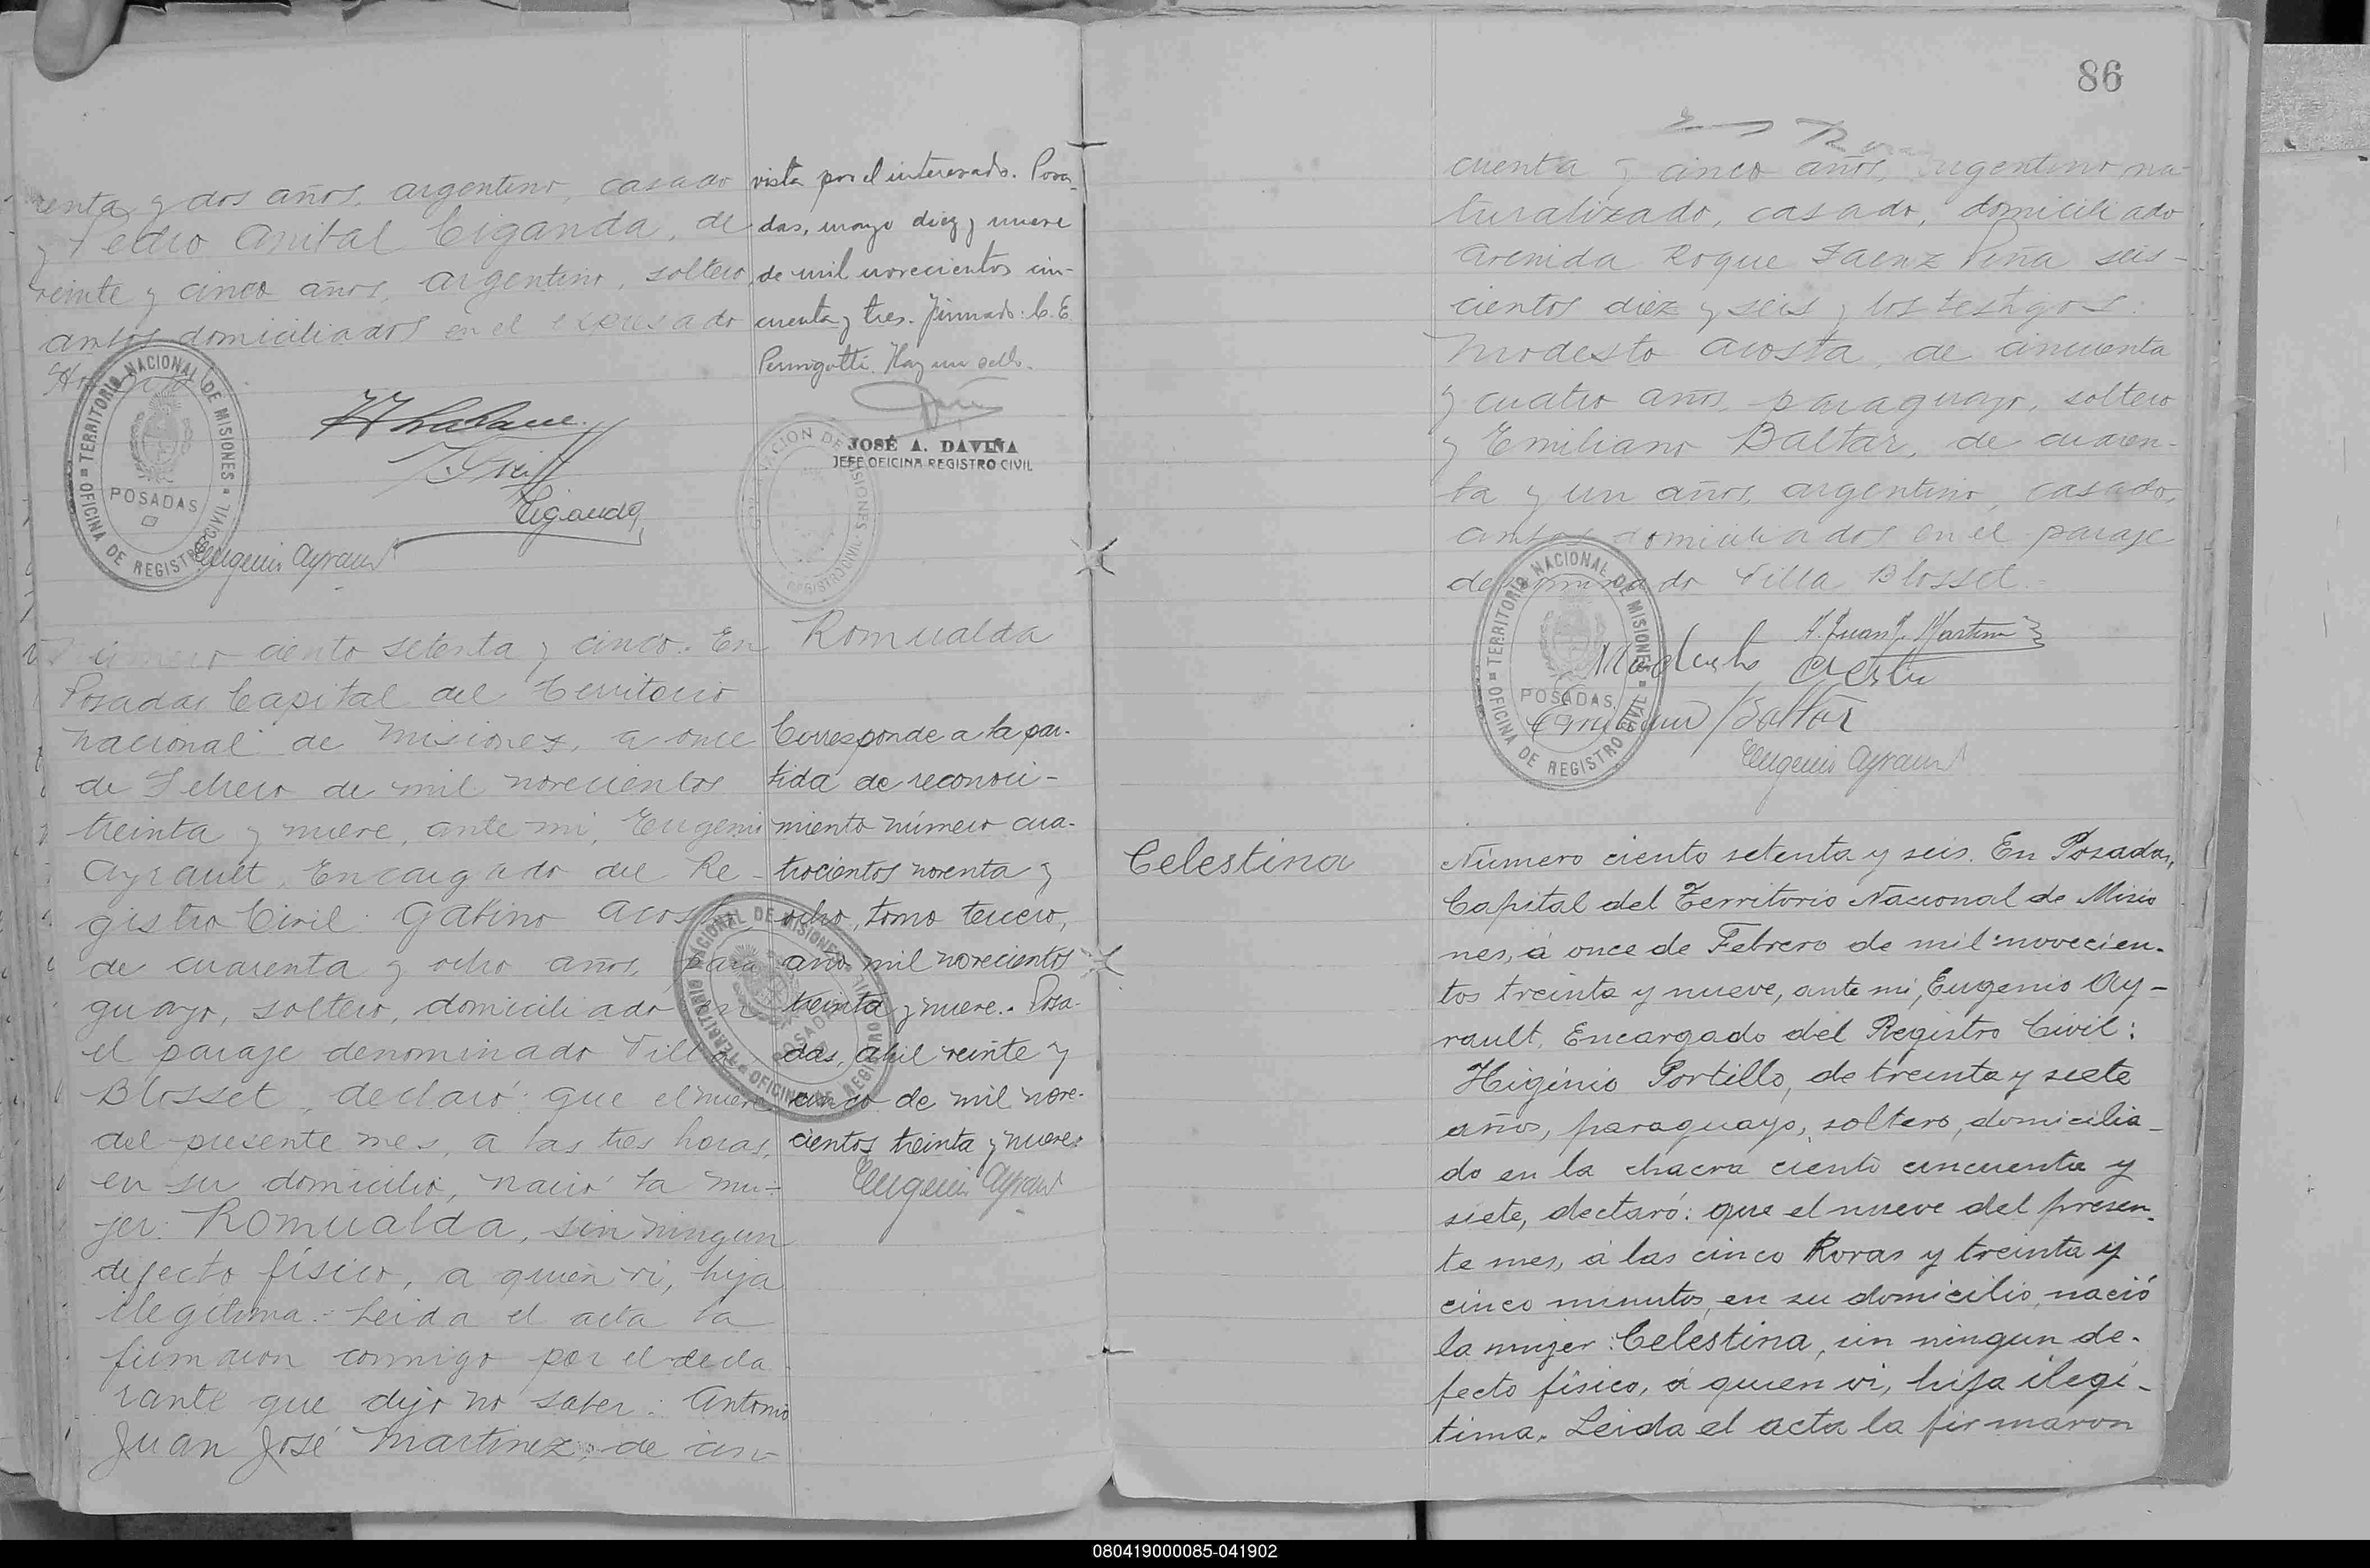 renta y dos años, argentino, casado
y Pedro Anibal Ciganda, de
veinte y cinco años, argentino, soltero,
ambos domiciliados en el expresado
TERRITORIO NACIONAL DE MISIONES
POSADAS
OFICINA DE REGISTRO CIVIL
Ciganda
Eugenio Ayrault
vista por el interesado. Posa-
das, mayo diez y nueve
de mil novecientos cin-
cuenta y tres. Firmado: C. E.
Perugotti. Hay un sello.
JOSÉ A. DAVIÑA
JEFE OFICINA REGISTRO CIVIL
Número ciento setenta y cinco. En
Posadas Capital del Territorio
Nacional de Misiones, a once
de Febrero de mil novecientos
treinta y nueve, ante mi, Eugenio
Ayrault, Encargado del Re-
gistro Civil: Gabino Acosta,
de cuarenta y ocho años, para
guayo, soltero, domiciliado en
el paraje denominado Villa
Blosset, declaró: que el nueve
del presente mes, a las tres horas,
en su domicilio, nació la mu-
jer: Romualda, sin ningun
defecto físico, a quien vi, hija
ilegítima.- Leida el acta la
firmaron conmigo por el decla
rante que dijo no saber: Antonio
Juan José Martinez, de cin-
Romualda
Corresponde a la par-
tida de reconoci-
miento número cua-
trocientos noventa y
ocho, tomo tercero,
año mil novecientos
treinta y nueve.- Posa-
das, abril veinte y
cinco de mil nove-
cientos treinta y nueve.
Eugenio Ayrault
TERRITORIO NACIONAL DE MISIONES
POSADAS
OFICINA DE REGISTRO CIVIL
86
cuenta y cinco años, argentino na-
turalizado, casado, domiciliado
avenida Roque Saenz Peña seis-
cientos diez y seis y los testigos:
Modesto Acosta, de cincuenta
y cuatro años, paraguayo, soltero
y Emiliano Baltar, de cuaren-
ta y un años, argentino, casado,
ambos domiciliados en el paraje
denominado Villa Blosset.
TERRITORIO NACIONAL DE MISIONES
POSADAS
OFICINA DE REGISTRO CIVIL
A. Juan J. Martinez
Modesto Acosta
Emiliano Baltar
Eugenio Ayrault
Celestina
Número ciento setenta y seis. En Posadas,
Capital del Territorio Nacional de Misio
nes, á once de Febrero de mil novecien-
tos treinta y nueve, ante mi, Eugenio Ay-
rault, Encargado del Registro Civil:
Higinio Portillo, de treinta y siete
años, paraguayo, soltero, domicilia-
do en la chacra ciento cincuenta y
siete, declaró: que el nueve del presen-
te mes, á las cinco horas y treinta y
cinco minutos, en su domicilio, nació
la mujer: Celestina, sin ningun de-
fecto físico, á quien vi, hija ilegi-
tima. Leida el acta la firmaron
080419000085-041902